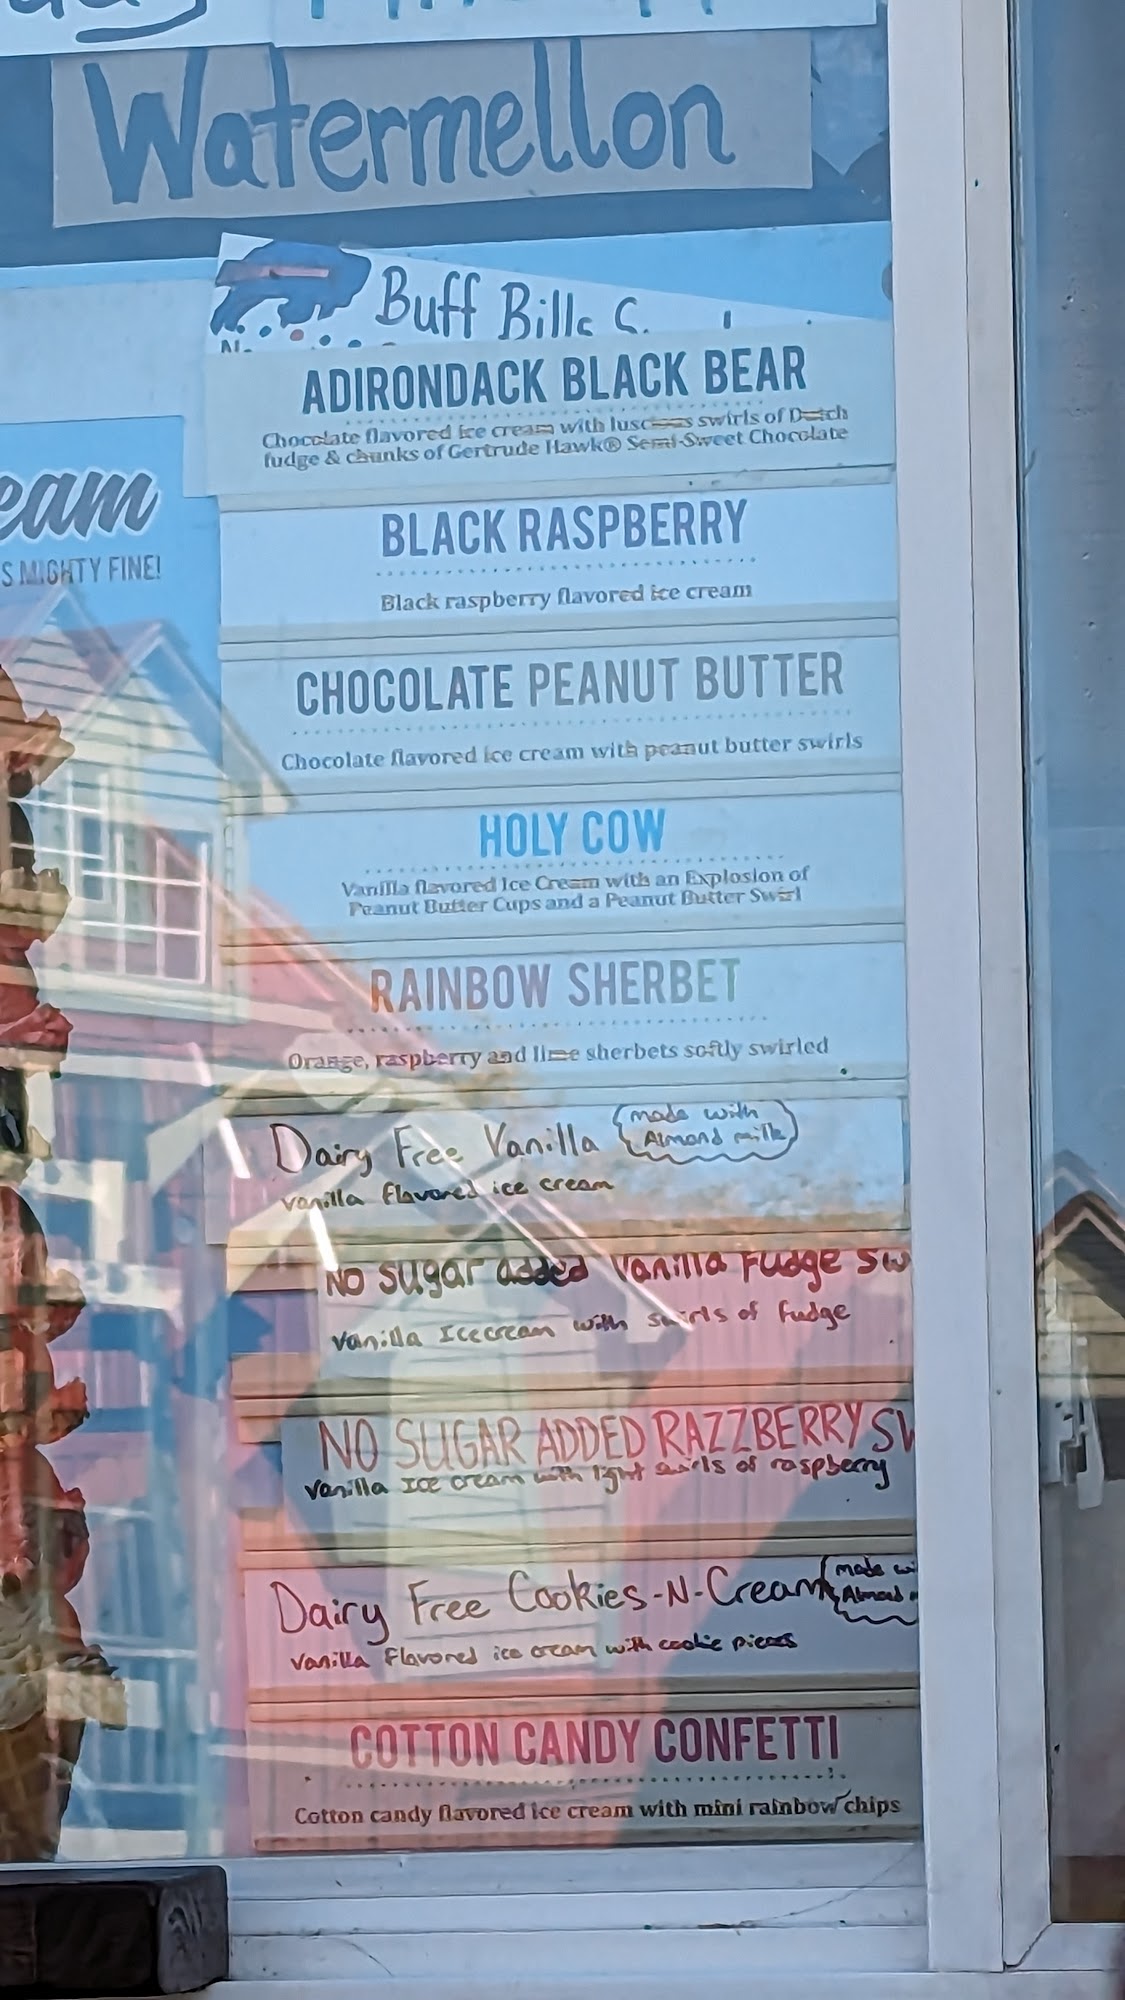 Watermellon
Buff Bills
ADIRONDACK BLACK BEAR
Chocolate flavored ice cream with luscious swirls of Dutch
fudge & chunks of Gertrude Hawk® Semi-Sweet Chocolate
eam
S MIGHTY FINE!
BLACK RASPBERRY
Black raspberry flavored ice cream
CHOCOLATE PEANUT BUTTER
Chocolate flavored ice cream with peanut butter swirls
HOLY COW
Vanilla flavored Ice Cream with an Explosion of
Peanut Butter Cups and a Peanut Butter Swirl
RAINBOW SHERBET
Orange, raspberry and lime sherbets softly swirled
Dairy Free Vanilla (made with
Almond milk)
vanilla flavored ice cream
NO sugar added Vanilla Fudge Sw
Vanilla Icecream with swirls of fudge
NO SUGAR ADDED RAZZBERRY SW
Vanilla Ice cream with light swirls of raspberry
Dairy Free Cookies-N-Cream (made wi
Almond m
Vanilla flavored ice cream with cookie pieces
COTTON CANDY CONFETTI
Cotton candy flavored ice cream with mini rainbow chips